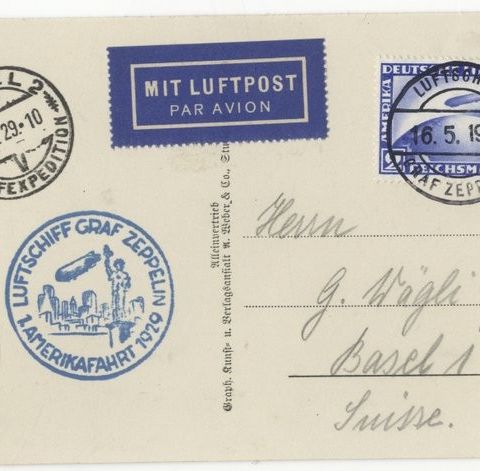 LL 2
29.-10
V
FEXPEDITION
MIT LUFTPOST
PAR AVION
DEUTSCHE
AMERIKA
2
REICHSM
LUFTSCH
16.5.19
GRAF ZEPPE
LUFTSCHIFF GRAF ZEPPELIN
1. AMERIKAFAHRT 1929
Alleinvertrieb
Graph. Kunst- u. Verlagsanstalt A. Weber & Co., Stu
Herrn
G. Wägli
Basel 1
Suisse.